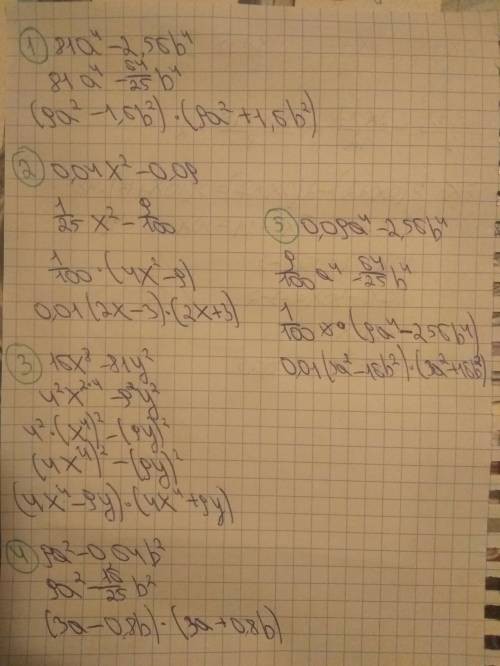 ① 81a⁴ - 2,56b⁴
81a⁴ - 64/25 b⁴
(9a² - 1,6b²) · (9a² + 1,6b²)
② 0,04x² - 0,09
1/25 x² - 9/100
1/100 · (4x² - 9)
0,01(2x - 3) · (2x + 3)
③ 16x⁸ - 81y²
4²x²·⁴ - 9²y²
4² · (x⁴)² - (9y)²
(4x⁴)² - (9y)²
(4x⁴ - 9y) · (4x⁴ + 9y)
④ 9a² - 0,64b²
9a² - 16/25 b²
(3a - 0,8b) · (3a + 0,8b)
⑤ 0,09a⁴ - 2,56b⁴
9/100 a⁴ - 64/25 b⁴
1/100 · (9a⁴ - 256b⁴)
0,01(3a² - 16b²) · (3a² + 16b²)